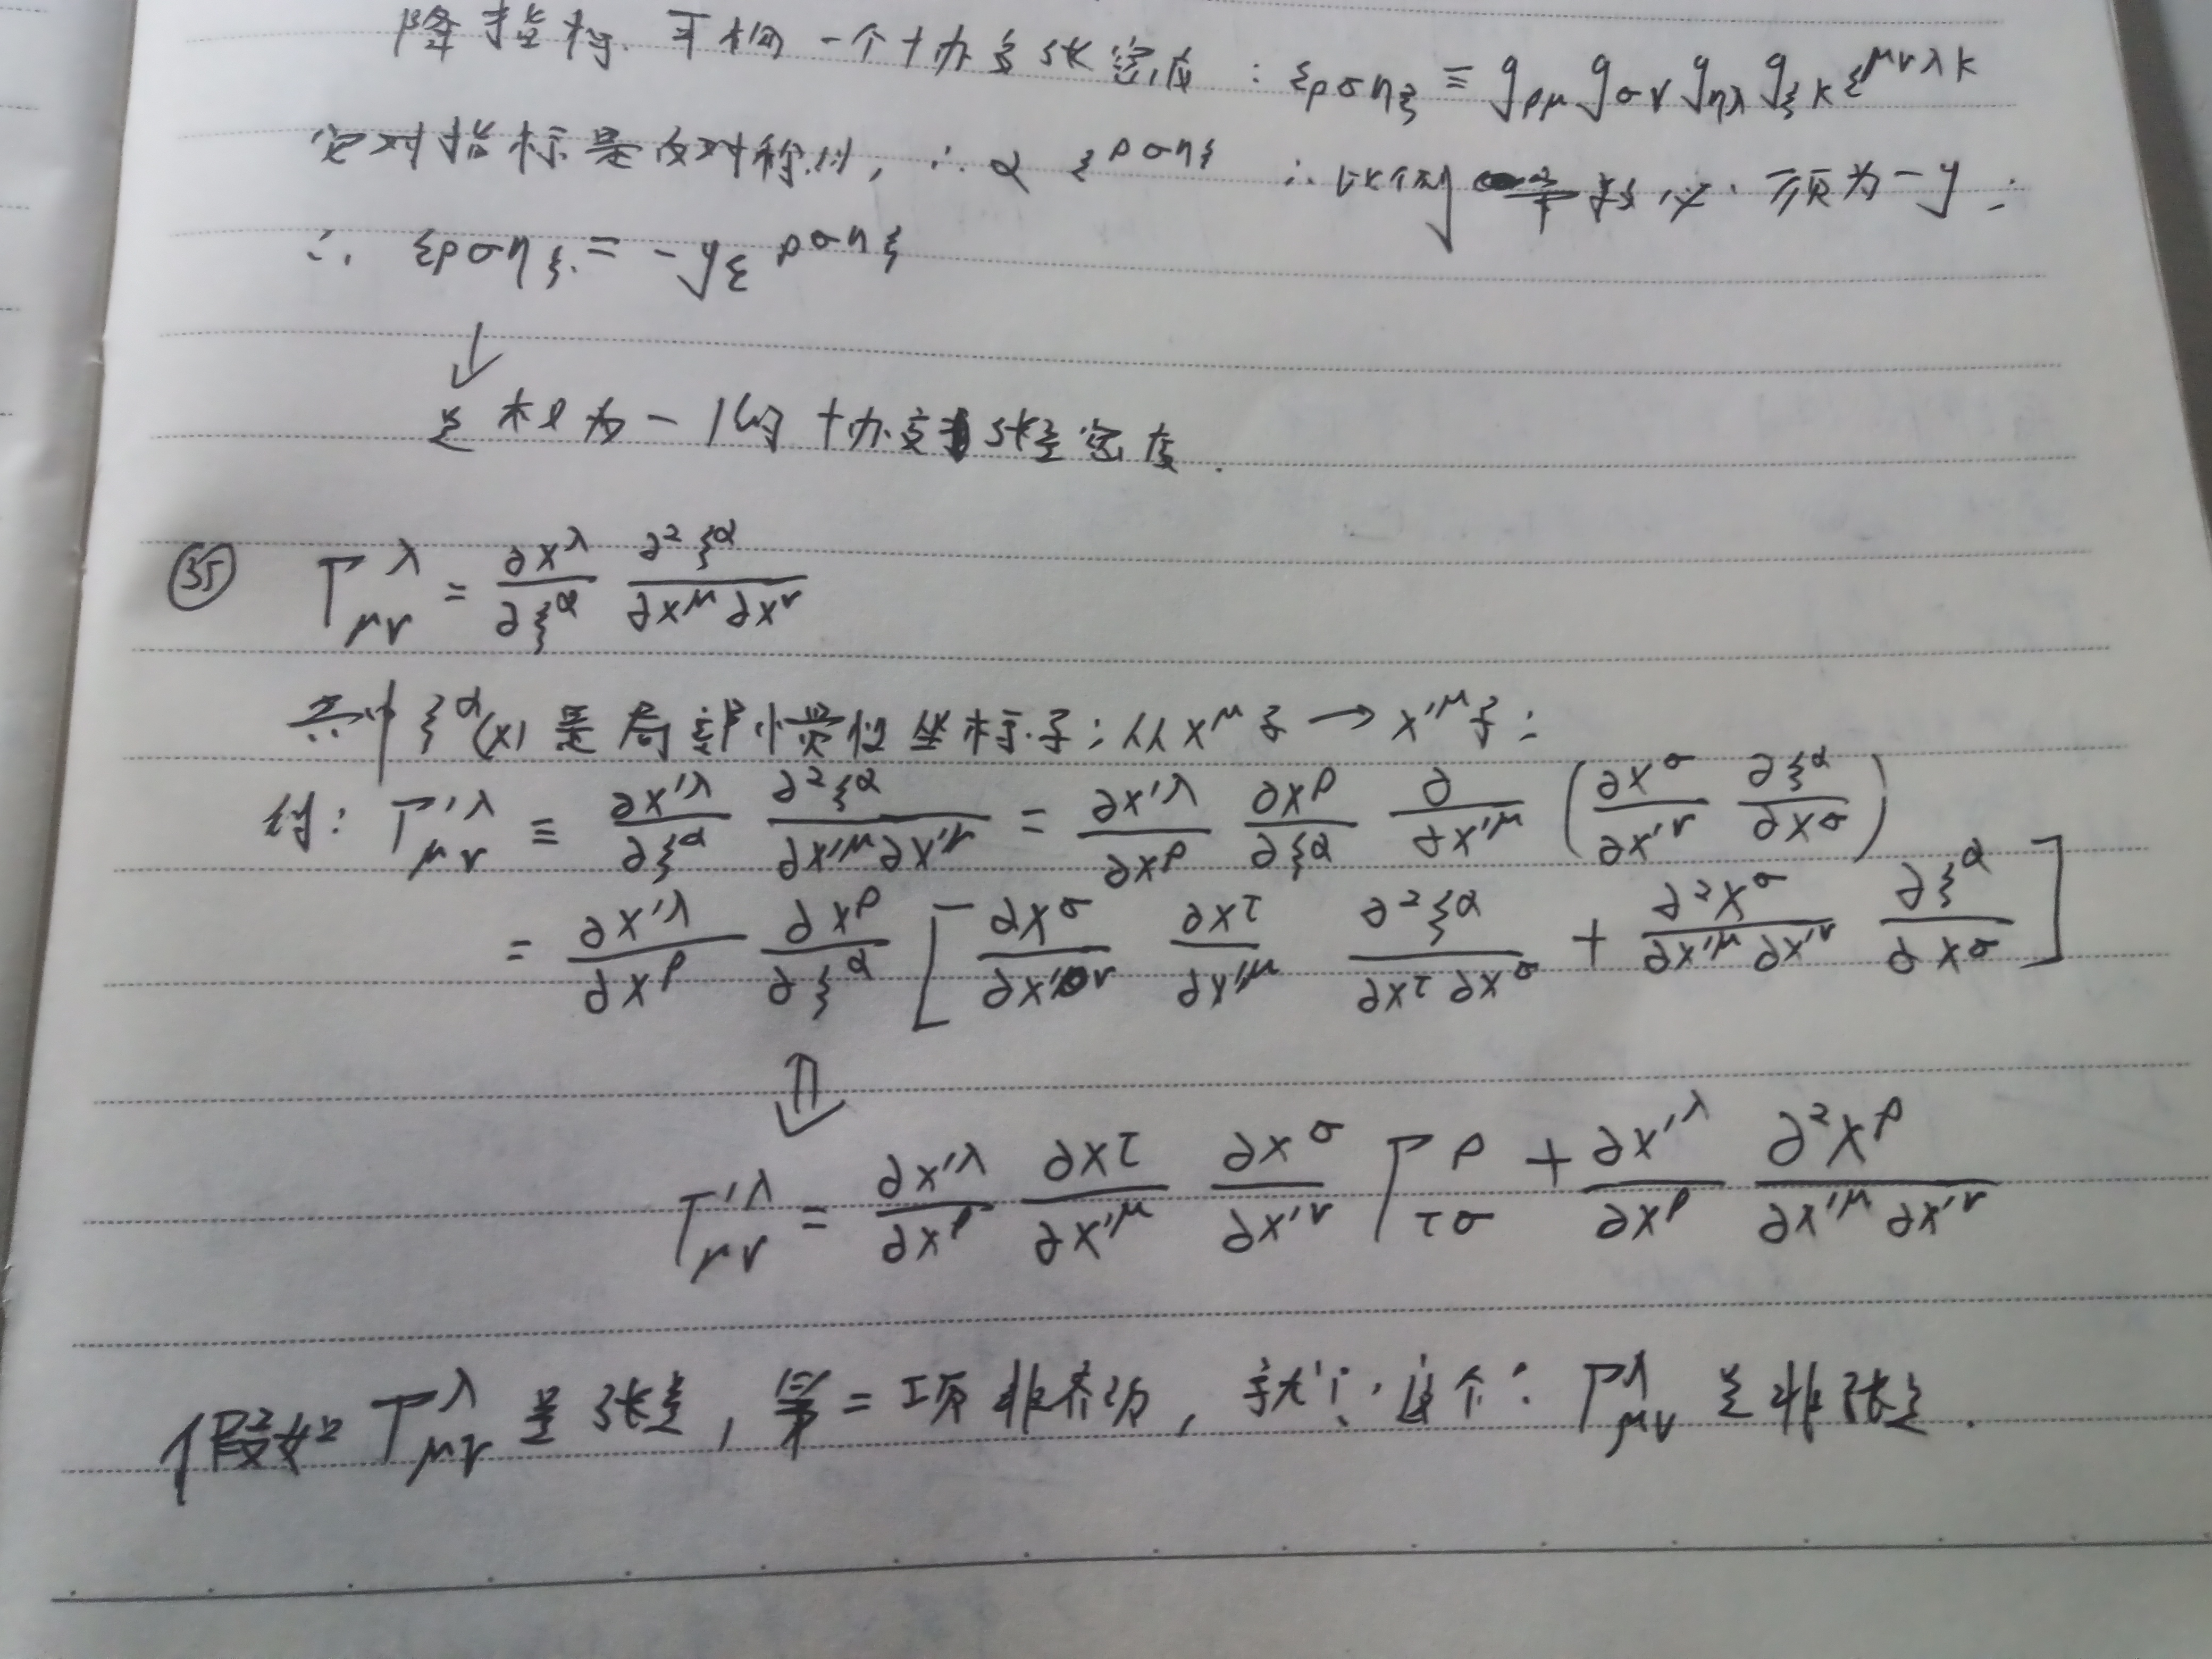 降指标. 可构一个协变张密度: ερσηξ ≡ gρμ gσν gηλ gξκ ε^μνλκ
它对指标是反对称的, ∴ α ε^ρσηξ ∴ 比例 为 -g:
∴ ερσηξ = -g ε^ρσηξ
↓
是权为-1的协变张量密度.
㉟ Γ^λ_μν = ∂x^λ/∂ξ^α ∂²ξ^α/∂x^μ∂x^ν
其中 ξ^α(x) 是局部惯性坐标系; 从 x^μ系 → x'^μ系:
得: Γ'^λ_μν ≡ ∂x'^λ/∂ξ^α ∂²ξ^α/∂x'^μ∂x'^ν = ∂x'^λ/∂x^ρ ∂x^ρ/∂ξ^α ∂/∂x'^μ (∂x^σ/∂x'^ν ∂ξ^α/∂x^σ)
= ∂x'^λ/∂x^ρ ∂x^ρ/∂ξ^α [∂x^σ/∂x'^ν ∂x^τ/∂x'^μ ∂²ξ^α/∂x^τ∂x^σ + ∂²x^σ/∂x'^μ∂x'^ν ∂ξ^α/∂x^σ]
⇓
Γ'^λ_μν = ∂x'^λ/∂x^ρ ∂x^τ/∂x'^μ ∂x^σ/∂x'^ν Γ^ρ_τσ + ∂x'^λ/∂x^ρ ∂²x^ρ/∂x'^μ∂x'^ν
假如 Γ^λ_μν 是张量, 第二项非齐次, 就让这个: Γ^λ_μν 是非张量.